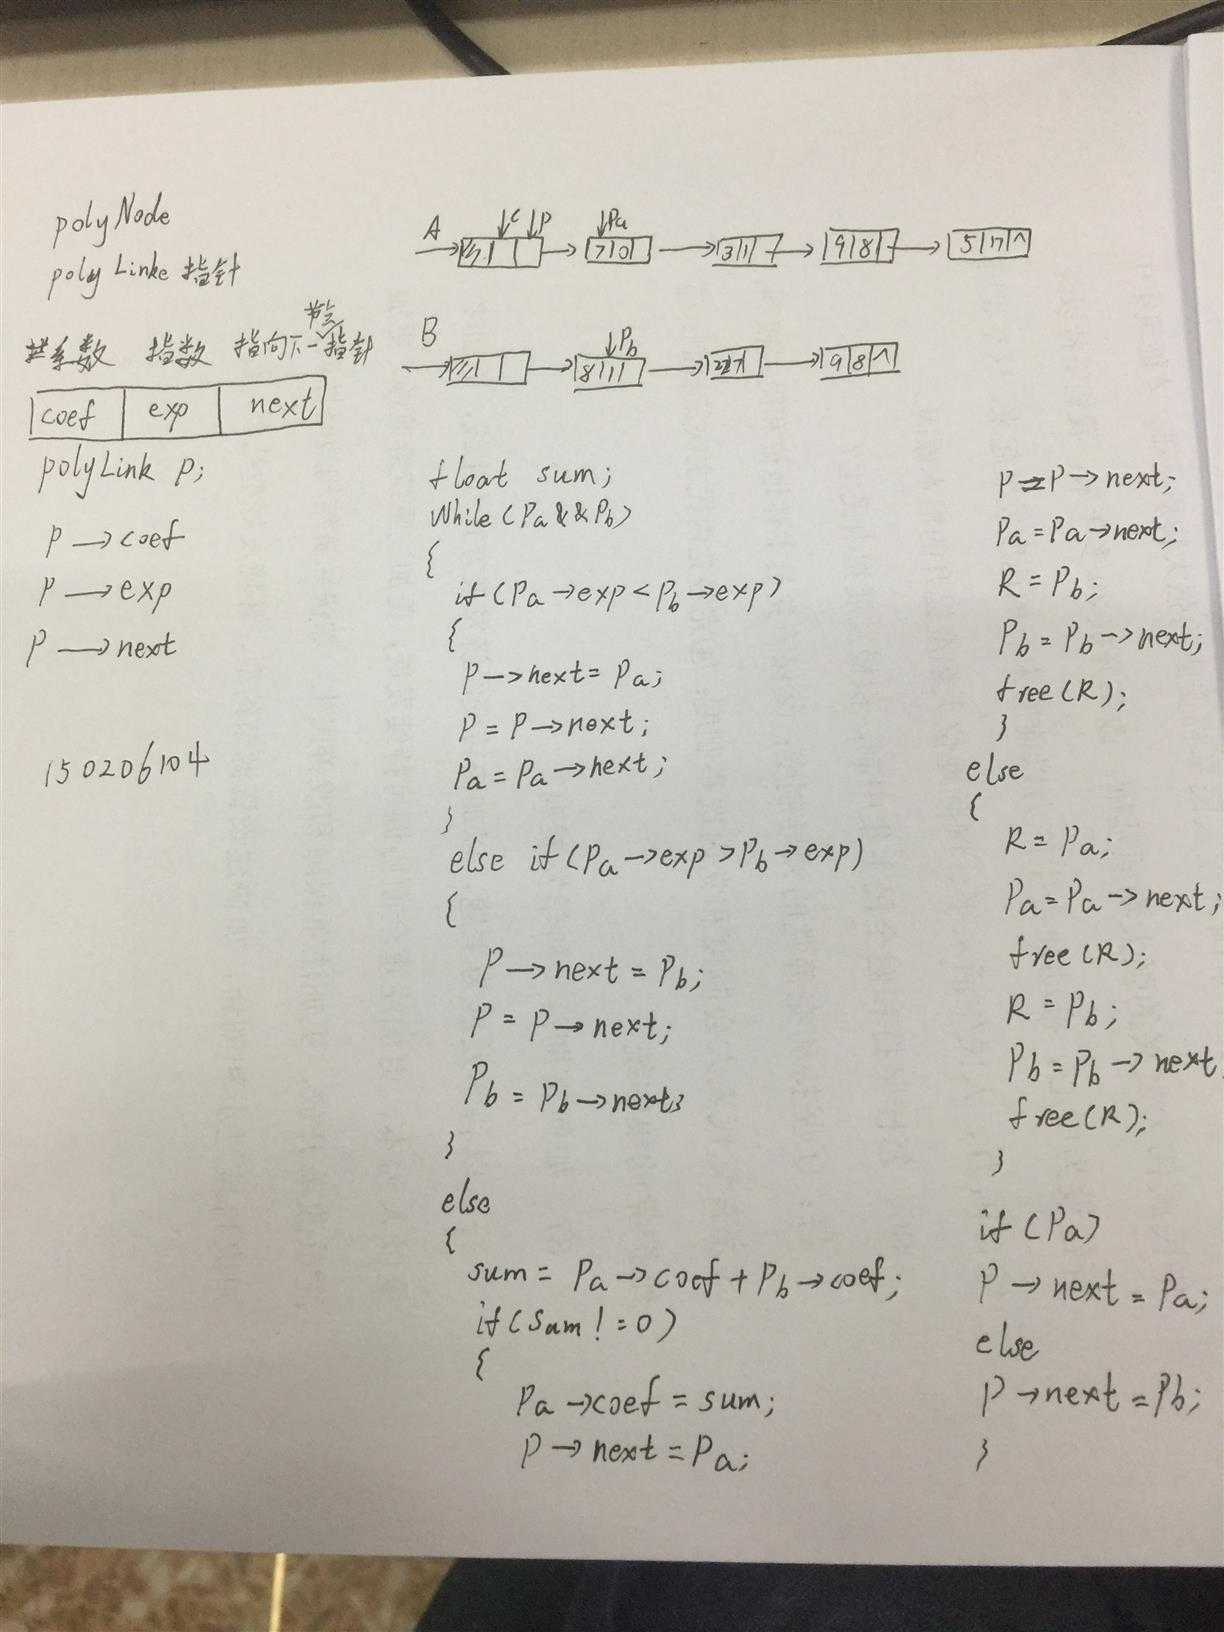 polyNode
polyLinke 指针
系数 指数 指向下一节点指针
coef exp next
polyLink p;
P→coef
P→exp
P→next
150206104
A C P Pa
7 0 3 1 9 8 5 17 ^
B Pb
8 1 22 7 9 8 ^
float sum;
While(Pa&&Pb)
{
if(Pa→exp<Pb→exp)
{
P→next=Pa;
P=P→next;
Pa=Pa→next;
}
else if(Pa→exp>Pb→exp)
{
P→next=Pb;
P=P→next;
Pb=Pb→next;
}
else
{
sum=Pa→coef+Pb→coef;
if(sum!=0)
{
Pa→coef=sum;
P→next=Pa;
P=P→next;
Pa=Pa→next;
R=Pb;
Pb=Pb→next;
free(R);
}
else
{
R=Pa;
Pa=Pa→next;
free(R);
R=Pb;
Pb=Pb→next
free(R);
}
if(Pa)
P→next=Pa;
else
P→next=Pb;
}